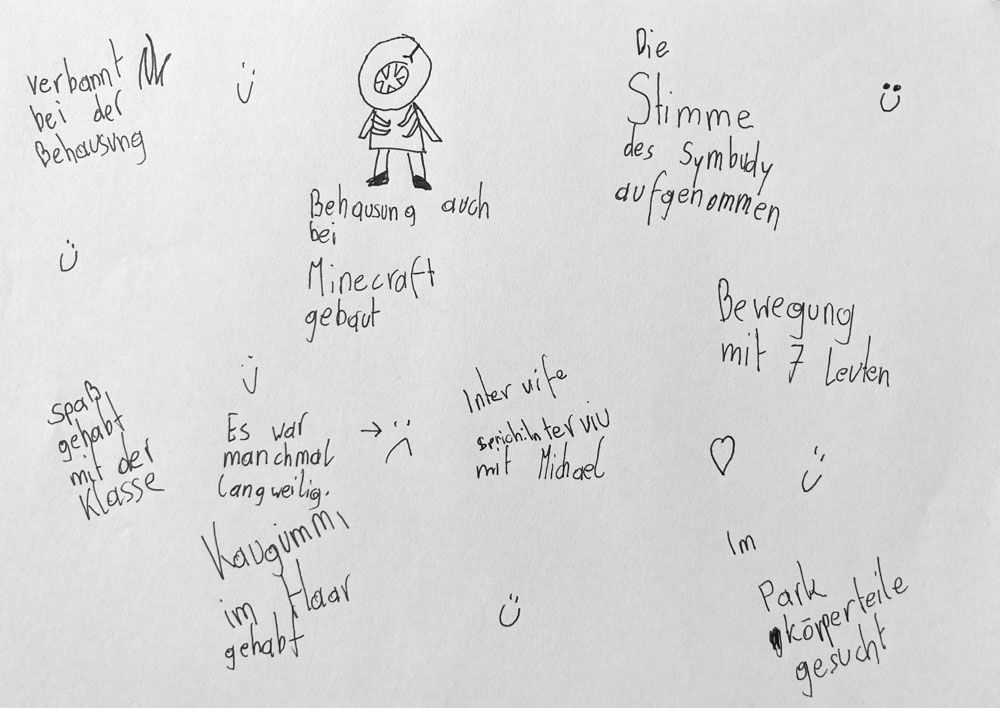 verbannt
bei der
Behausung
Behausung auch
bei
Minecraft
gebaut
Die
Stimme
des Symbudy
aufgenommen
Bewegung
mit 7 Leuten
spaß
gehabt
mit der
Klasse
Es war
manchmal
langweilig.
Kaugummi
im Haar
gehabt
Inter vife
sprich:Inter viu
mit Michael
Im
Park
körperteile
gesucht